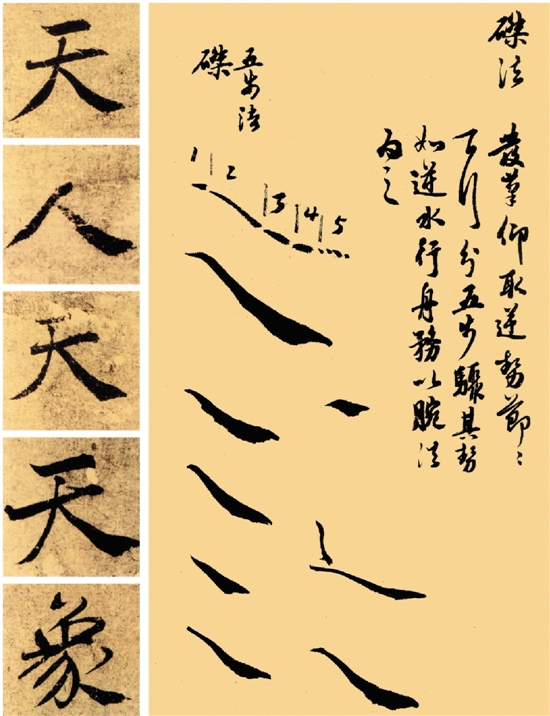 磔法
發筆仰取逆勢節〻
下行分五步驟其勢
如逆水行舟務以腕法
为之
五步法
磔
1 2 3 4 5
天
人
天
天
象